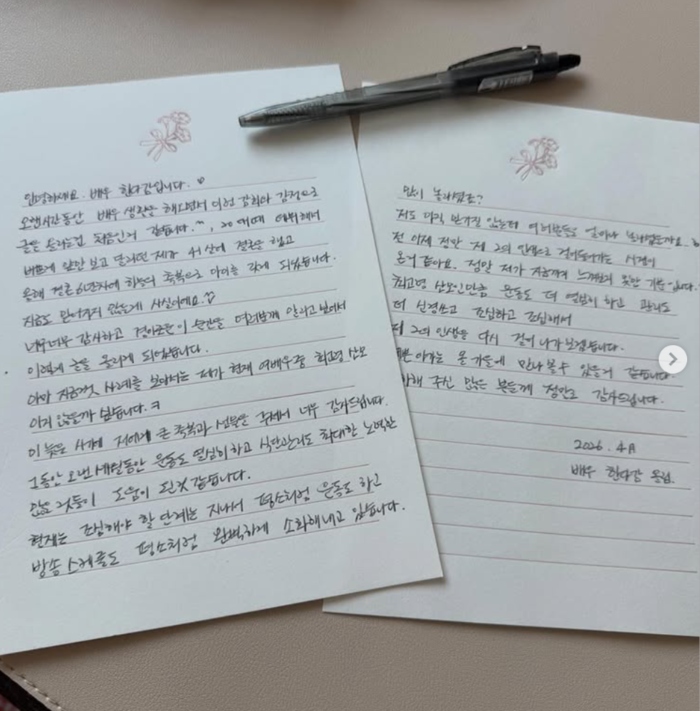 안녕하세요. 배우 한다감입니다.
오랜시간동안 배우 생활을 해오면서 이런 감회와 감정으로
글을 올리는건 처음인거 같습니다.^^, 20대때 데뷔해서
바쁘게 앞만 보고 달리던 제가 41살에 결혼을 했고
올해 결혼 6년차에 하늘의 축복으로 아이를 갖게 되었습니다.
지금도 믿어지지 않는게 사실이에요.
너무너무 감사하고 경이로운 이 순간을 여러분께 알리고 싶어서
이렇게 글을 올리게 되었습니다.
아마 지금껏 사례를 보아서는 제가 현재 여배우중 최고령 산모
아지 않을까 싶습니다. ㅋ
이 늦은 시기에 저에게 큰 축복과 선물을 주셔서 너무 감사드립니다.
그동안 오랜세월동안 운동도 열심히 하고 식단관리도 최대한 노력한
것들이 도움이 된것 같습니다.
현재는 조심해야 할 단계는 지나서 평소처럼 운동도 하고
방송 스케줄도 평소처럼 완벽하게 소화해내고 있습니다.
많이 놀라셨죠?
저도 아직 안 믿기는데 여러분들은 얼마나 놀라셨을까요.
전 이제 정말 제 2의 인생으로 걸어들어가는 시점이
온거 같아요. 정말 제가 지금까지 느껴보지 못한 기분입니다.
최고령 산모인만큼 운동도 더 열심히 하고 관리도
더 신경쓰고 조심하고 조심해서
제 2의 인생을 다시 걸어 나가보겠습니다.
쁜 아가는 올 가을에 만나볼수 있을거 같습니다.
하해 주신 많은 분들께 정말로 감사드립니다.
2026. 4月
배우 한다감 올림.